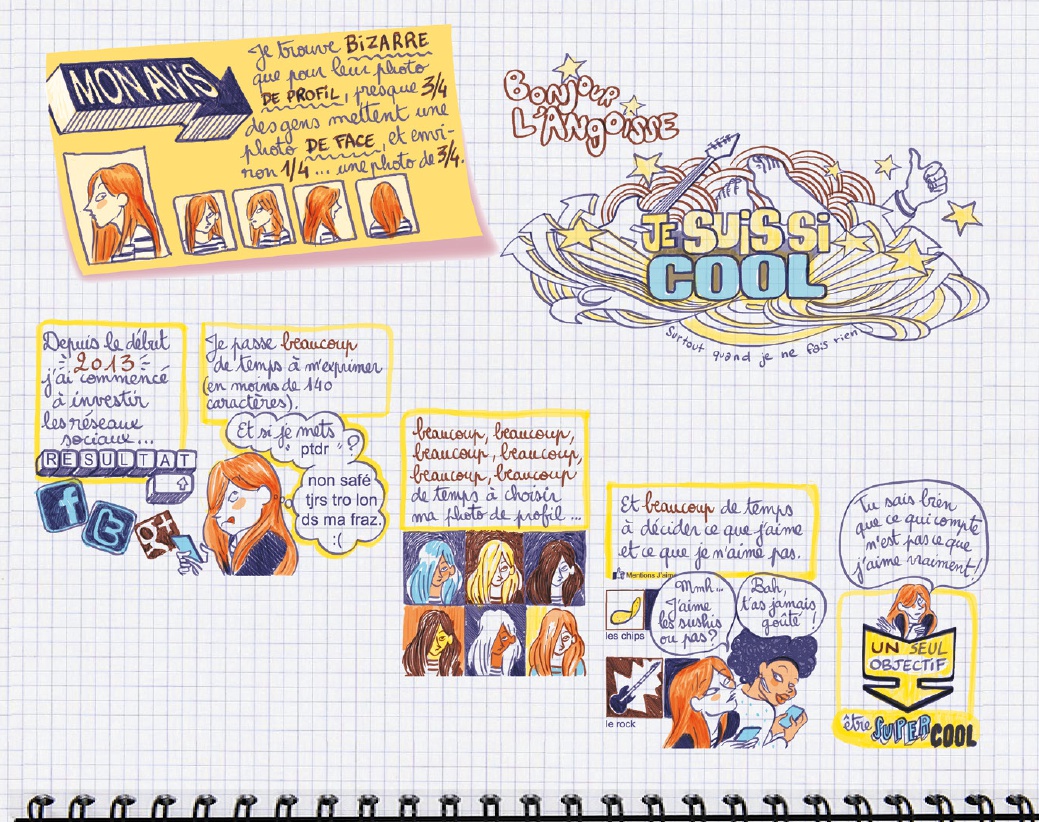 MON AVIS
Je trouve BIZARRE
que pour leur photo
DE PROFIL, presque 3/4
des gens mettent une
photo DE FACE, et envi-
ron 1/4 ... une photo de 3/4.
Bonjour
L'ANGOISSE
JE SUIS SI
COOL
Surtout quand je ne fais rien
Depuis le début
2013
j'ai commencé
à investir
les réseaux
sociaux...
RESULTAT
Je passe beaucoup
de temps à m'exprimer
(en moins de 140
caractères).
Et si je mets
"ptdr"?
non safé
tjrs tro lon
ds ma fraz.
:(
f
t
g+
beaucoup, beaucoup,
beaucoup, beaucoup,
beaucoup, beaucoup
de temps à choisir
ma photo de profil ...
Et beaucoup de temps
à décider ce que j'aime
et ce que je n'aime pas.
Mentions J'aime
les chips
le rock
Mmh...
J'aime
les sushis
ou pas?
Bah,
t'as jamais
goûté !
Tu sais bien
que ce qui compte
n'est pas ce que
j'aime vraiment!
UN SEUL
OBJECTIF
être SUPER COOL